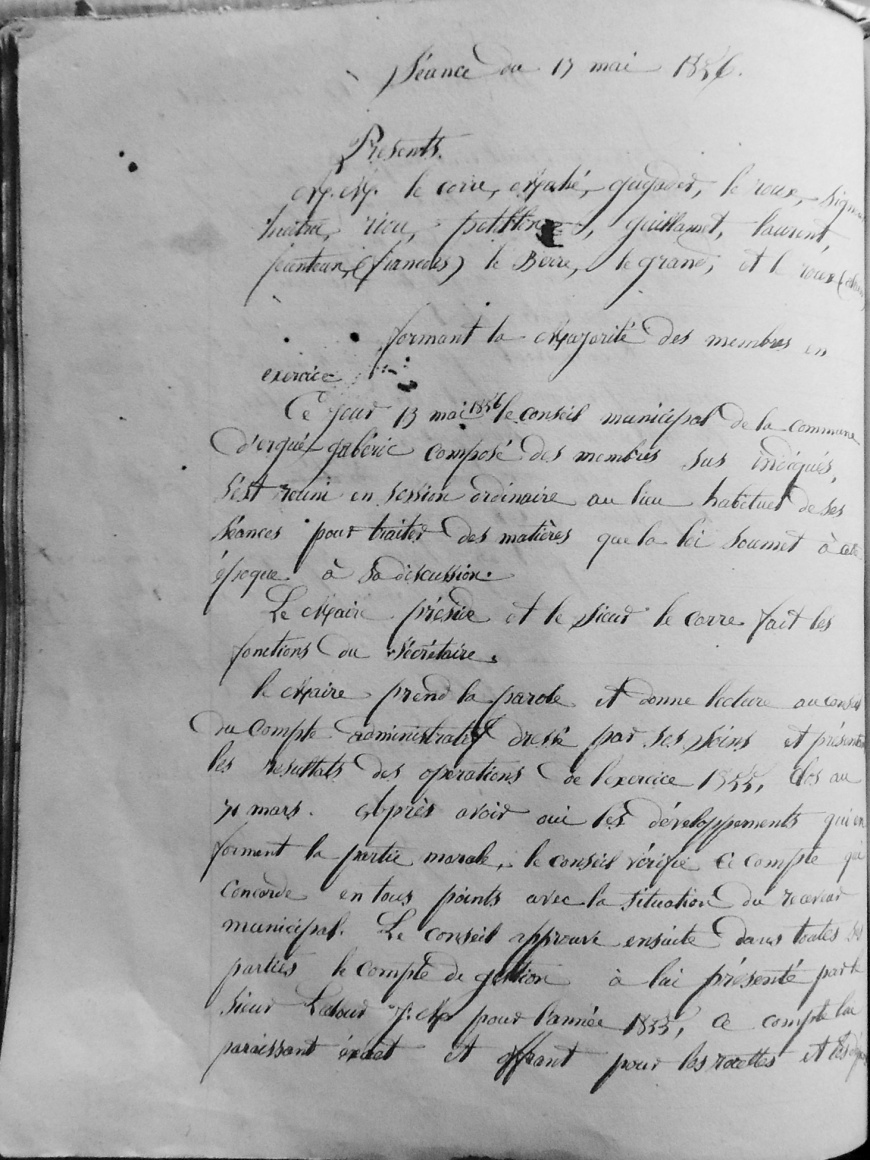 Séance du 13 mai 1856.
Présents.
M.M. le corre, Mahé, gugudet, le roux,
huitric, riou, guillamet, laurent,
(francois) le Berre, le grand, et le roux
formant la Majorité des membres en
exercice
Ce jour 13 mai 1856 le conseil municipal de la commune
d'ergué-gabéric composé des membres sus indiqués,
s'est réuni en session ordinaire au lieu habituel de ses
séances pour traiter des matières que la loi soumet à cette
époque à sa discussion.
Le Maire préside et le sieur le corre fait les
fonctions du Sécrétaire.
le Maire prend la parole et donne lecture au conseil
du compte administratif dressé par ses soins et présente
les résultats des opérations de l'exercice 1855, clos au
31 mars. Après avoir oui les développements qui en
forment la partie morale, le conseil vérifie ce compte qui
concorde en tous points avec la situation du receveur
municipal. Le conseil approuve ensuite dans toutes ses
parties le compte de gestion à lui présenté par le
sieur pour l'année 1855, ce compte lui
paraissant éxact et offrant pour les recettes et les